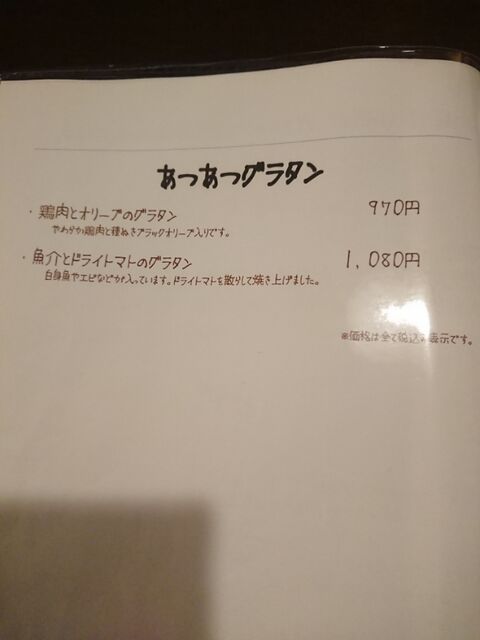 あつあつグラタン
・鶏肉とオリーブのグラタン 970円
やわらか鶏肉と種ぬきブラックオリーブ入りです。
・魚介とドライトマトのグラタン 1,080円
白身魚やエビなどが入っています。ドライトマトを散らして焼き上げました。
※価格は全て税込の表示です。